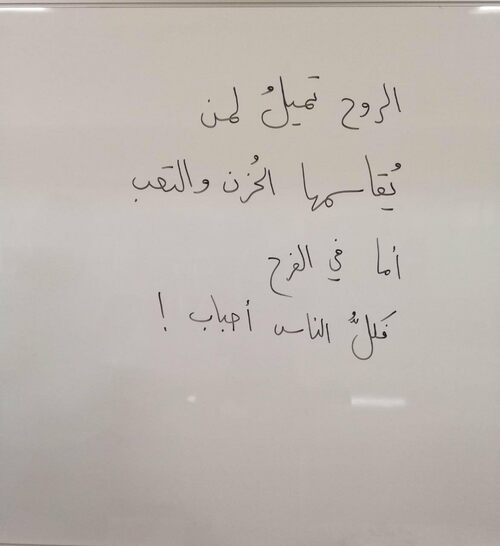 الروح تميلُ لمن
يُقاسمها الحُزن والتعب
أما في الفرح
فكلُّ الناس أحباب !